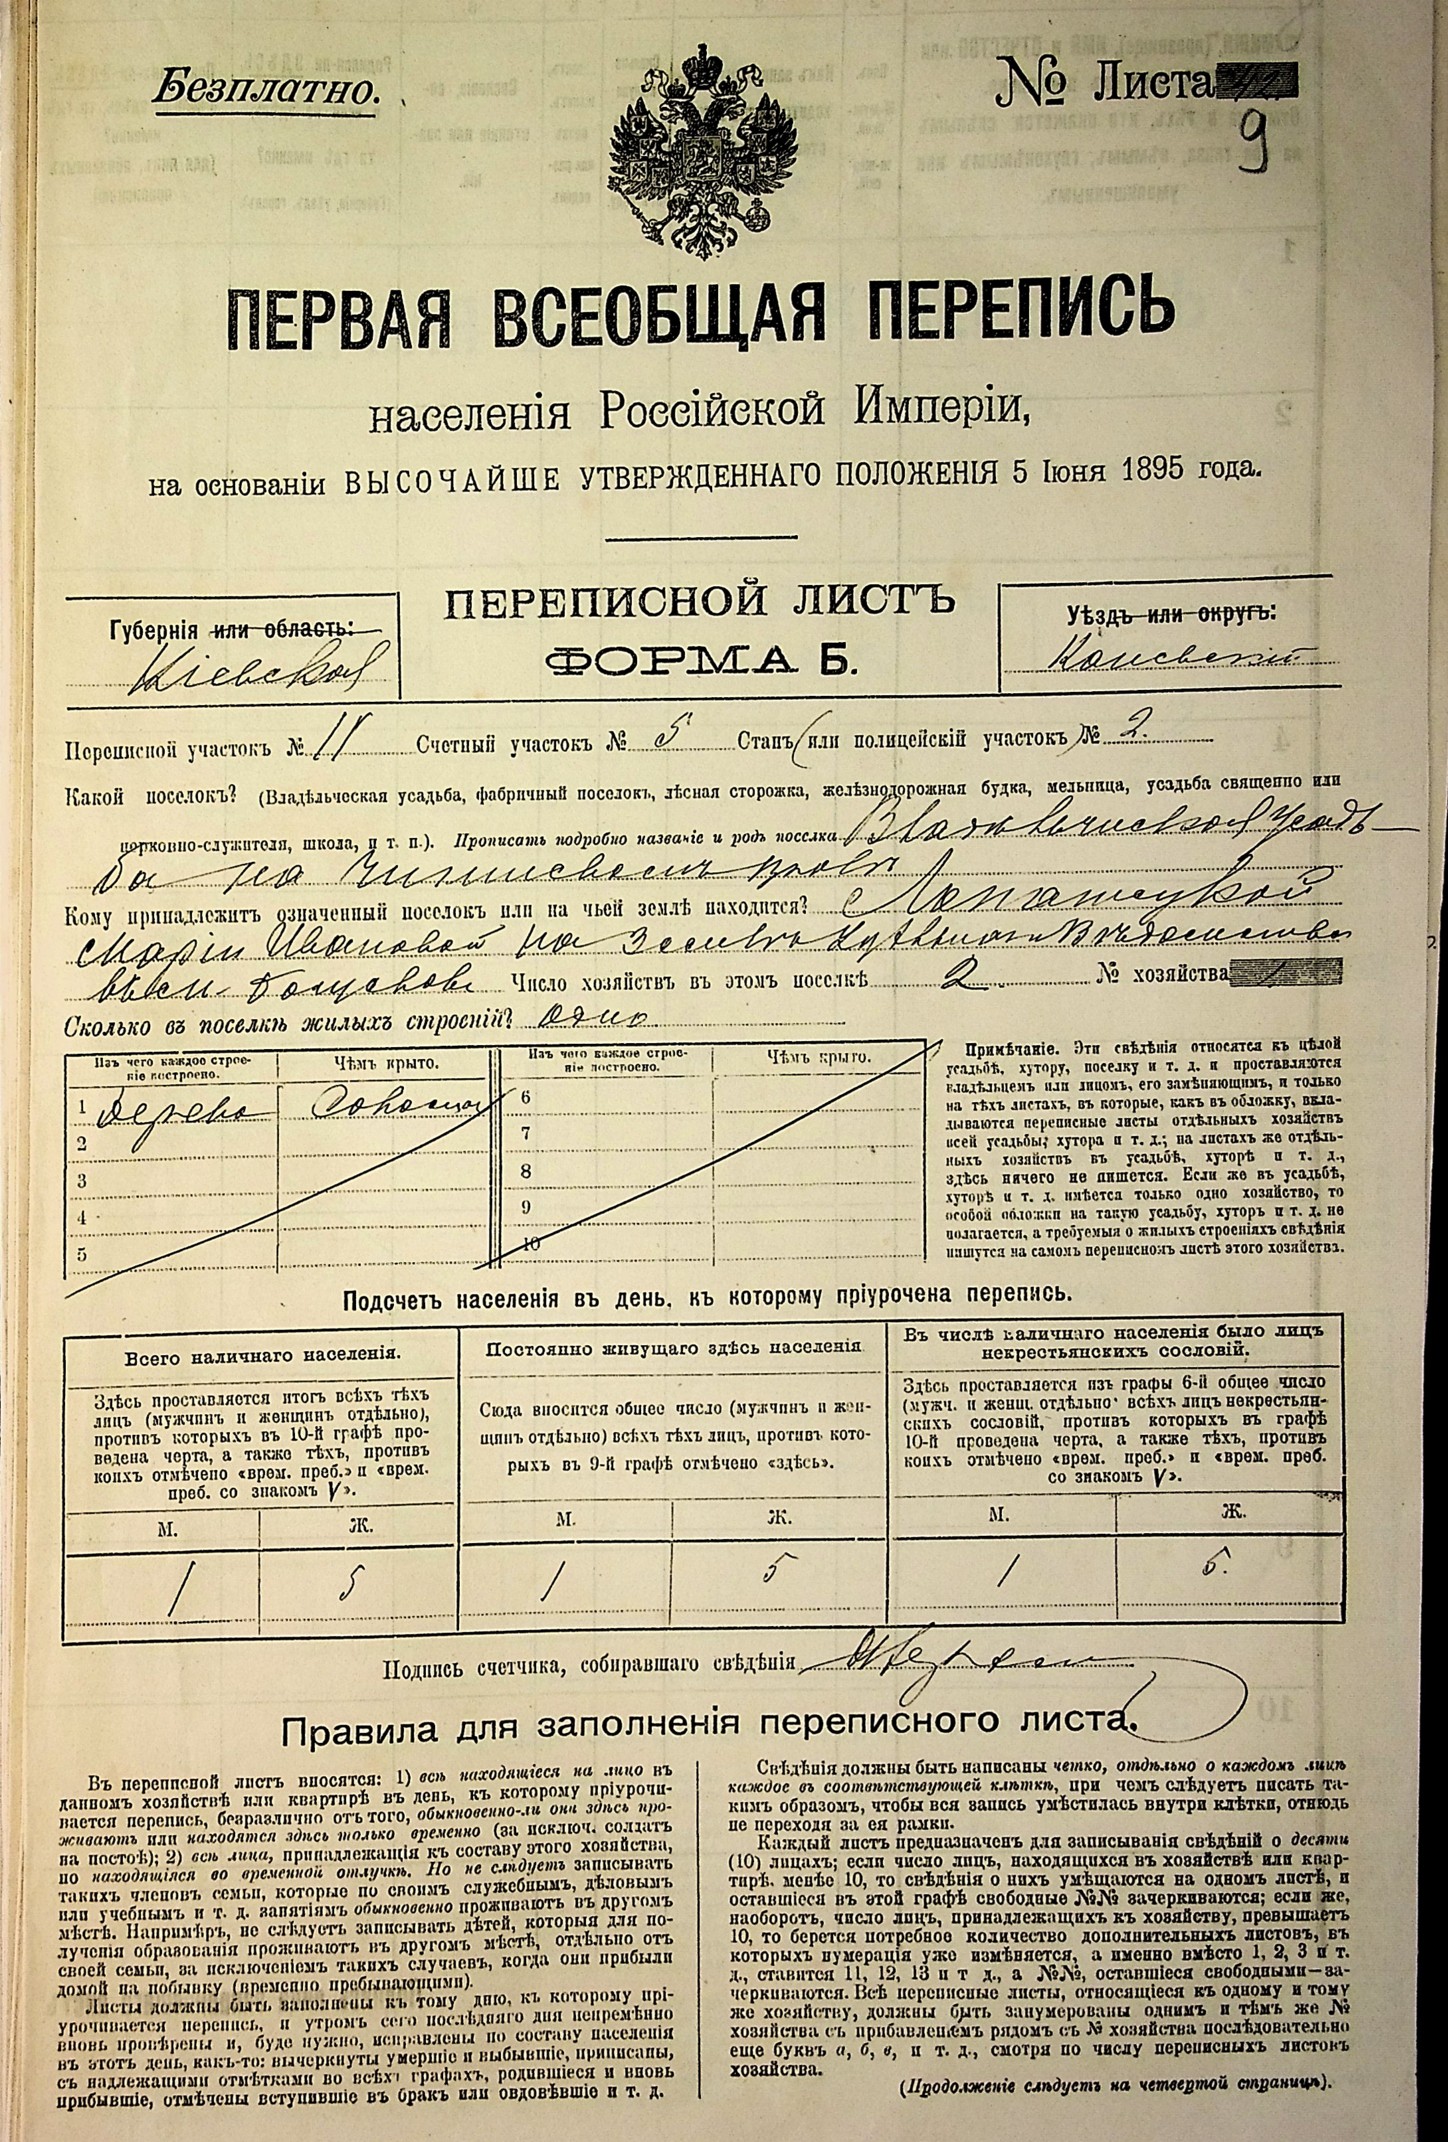 Безплатно.
№ Листа
9
ПЕРВАЯ ВСЕОБЩАЯ ПЕРЕПИСЬ
населенія Россійской Имперіи,
на основаніи ВЫСОЧАЙШЕ УТВЕРЖДЕННАГО ПОЛОЖЕНІЯ 5 Іюня 1895 года.
ПЕРЕПИСНОЙ ЛИСТЪ
ФОРМА Б.
Губернія или область:
Кіевская
Уѣздъ или округъ:
Каневскій
Переписной участокъ № 11 Счетный участокъ № 5 Станъ (или полицейскій участокъ) № 2.
Какой поселокъ? (Владѣльческая усадьба, фабричный поселокъ, лѣсная сторожка, желѣзнодорожная будка, мельница, усадьба священно или
церковно-служителя, школа, и т. п.). Прописать подробно названіе и родъ поселка Владѣльческая Усадь
ба на Чиншевомъ правѣ
Кому принадлежитъ означенный поселокъ или на чьей землѣ находится?
Маріи Ивановой На Землѣ Удѣльнаго Вѣдомства
Число хозяйствъ въ этомъ поселкѣ 2. № хозяйства
Сколько въ поселкѣ жилыхъ строеній? одно
Изъ чего каждое строе-
ніе построено.
Чѣмъ крыто.
Изъ чего каждое строе-
ніе построено.
Чѣмъ крыто.
1 Дерево Соломой
2
3
4
5
6
7
8
9
10
Примѣчаніе. Эти свѣдѣнія относятся къ цѣлой
усадьбѣ, хутору, поселку и т. д. и проставляются
владѣльцемъ или лицомъ, его замѣняющимъ, и только
на тѣхъ листахъ, въ которые, какъ въ обложку, вкла-
дываются переписные листы отдѣльныхъ хозяйствъ
всей усадьбы, хутора и т. д.; на листахъ же отдѣль-
ныхъ хозяйствъ въ усадьбѣ, хуторѣ и т. д.,
здѣсь ничего не пишется. Если же въ усадьбѣ,
хуторѣ и т. д. имѣется только одно хозяйство, то
особой обложки на такую усадьбу, хуторъ и т. д. не
полагается, а требуемыя о жилыхъ строеніяхъ свѣдѣнія
пишутся на самомъ переписномъ листѣ этого хозяйства.
Подсчетъ населенія въ день, къ которому пріурочена перепись.
Всего наличнаго населенія.
Здѣсь проставляется итогъ всѣхъ тѣхъ
лицъ (мужчинъ и женщинъ отдѣльно),
противъ которыхъ въ 10-й графѣ про-
ведена черта, а также тѣхъ, противъ
коихъ отмѣчено «врем. преб.» и «врем.
преб. со знакомъ V».
М. Ж.
1 5
Постоянно живущаго здѣсь населенія
Сюда вносится общее число (мужчинъ и жен-
щинъ отдѣльно) всѣхъ тѣхъ лицъ, противъ кото-
рыхъ въ 9-й графѣ отмѣчено «здѣсь».
М. Ж.
1 5
Въ числѣ наличнаго населенія было лицъ
некрестьянскихъ сословій.
Здѣсь проставляется изъ графы 6-й общее число
(мужч. и женщ. отдѣльно) всѣхъ лицъ некрестьян-
скихъ сословій, противъ которыхъ въ графѣ
10-й проведена черта, а также тѣхъ, противъ
коихъ отмѣчено «врем. преб.» и «врем. преб.
со знакомъ V».
М. Ж.
1 5.
Подпись счетчика, собиравшаго свѣдѣнія
Правила для заполненія переписного листа.
Въ переписной листъ вносятся: 1) всѣ находящіеся на лицо въ
данномъ хозяйствѣ или квартирѣ въ день, къ которому пріурочи-
вается перепись, безразлично отъ того, обыкновенно-ли они здѣсь про-
живаютъ или находятся здѣсь только временно (за исключ. солдатъ
на постоѣ); 2) всѣ лица, принадлежащія къ составу этого хозяйства,
но находящіяся во временной отлучкѣ. Но не слѣдуетъ записывать
такихъ членовъ семьи, которые по своимъ служебнымъ, дѣловымъ
или учебнымъ и т. д. занятіямъ обыкновенно проживаютъ въ другомъ
мѣстѣ. Напримѣръ, не слѣдуетъ записывать дѣтей, которыя для по-
лученія образованія проживаютъ въ другомъ мѣстѣ, отдѣльно отъ
своей семьи, за исключеніемъ такихъ случаевъ, когда они прибыли
домой на побывку (временно пребывающими).
Листы должны быть заполнены къ тому дню, къ которому прі-
урочивается перепись, и утромъ сего послѣдняго дня непремѣнно
вновь провѣрены и, буде нужно, исправлены по составу населенія
въ этотъ день, какъ-то: вычеркнуты умершіе и выбывшіе, приписаны,
съ надлежащими отмѣтками во всѣхъ графахъ, родившіеся и вновь
прибывшіе, отмѣчены вступившіе въ бракъ или овдовѣвшіе и т. д.
Свѣдѣнія должны быть написаны четко, отдѣльно о каждомъ лицѣ
каждое въ соотвѣтствующей клѣткѣ, при чемъ слѣдуетъ писать та-
кимъ образомъ, чтобы вся запись умѣстилась внутри клѣтки, отнюдь
не переходя за ея рамки.
Каждый листъ предназначенъ для записыванія свѣдѣній о десяти
(10) лицахъ; если число лицъ, находящихся въ хозяйствѣ или квар-
тирѣ, менѣе 10, то свѣдѣнія о нихъ умѣщаются на одномъ листѣ, и
оставшіеся въ этой графѣ свободные №№ зачеркиваются; если же,
наоборотъ, число лицъ, принадлежащихъ къ хозяйству, превышаетъ
10, то берется потребное количество дополнительныхъ листовъ, въ
которыхъ нумерація уже измѣняется, а именно вмѣсто 1, 2, 3 и т.
д., ставится 11, 12, 13 и т д., а №№, оставшіеся свободными—за-
черкиваются. Всѣ переписные листы, относящіеся къ одному и тому
же хозяйству, должны быть занумерованы однимъ и тѣмъ же №
хозяйства съ прибавленіемъ рядомъ съ № хозяйства послѣдовательно
еще буквъ а, б, в, и т. д., смотря по числу переписныхъ листовъ
хозяйства.
(Продолженіе слѣдуетъ на четвертой страницѣ).